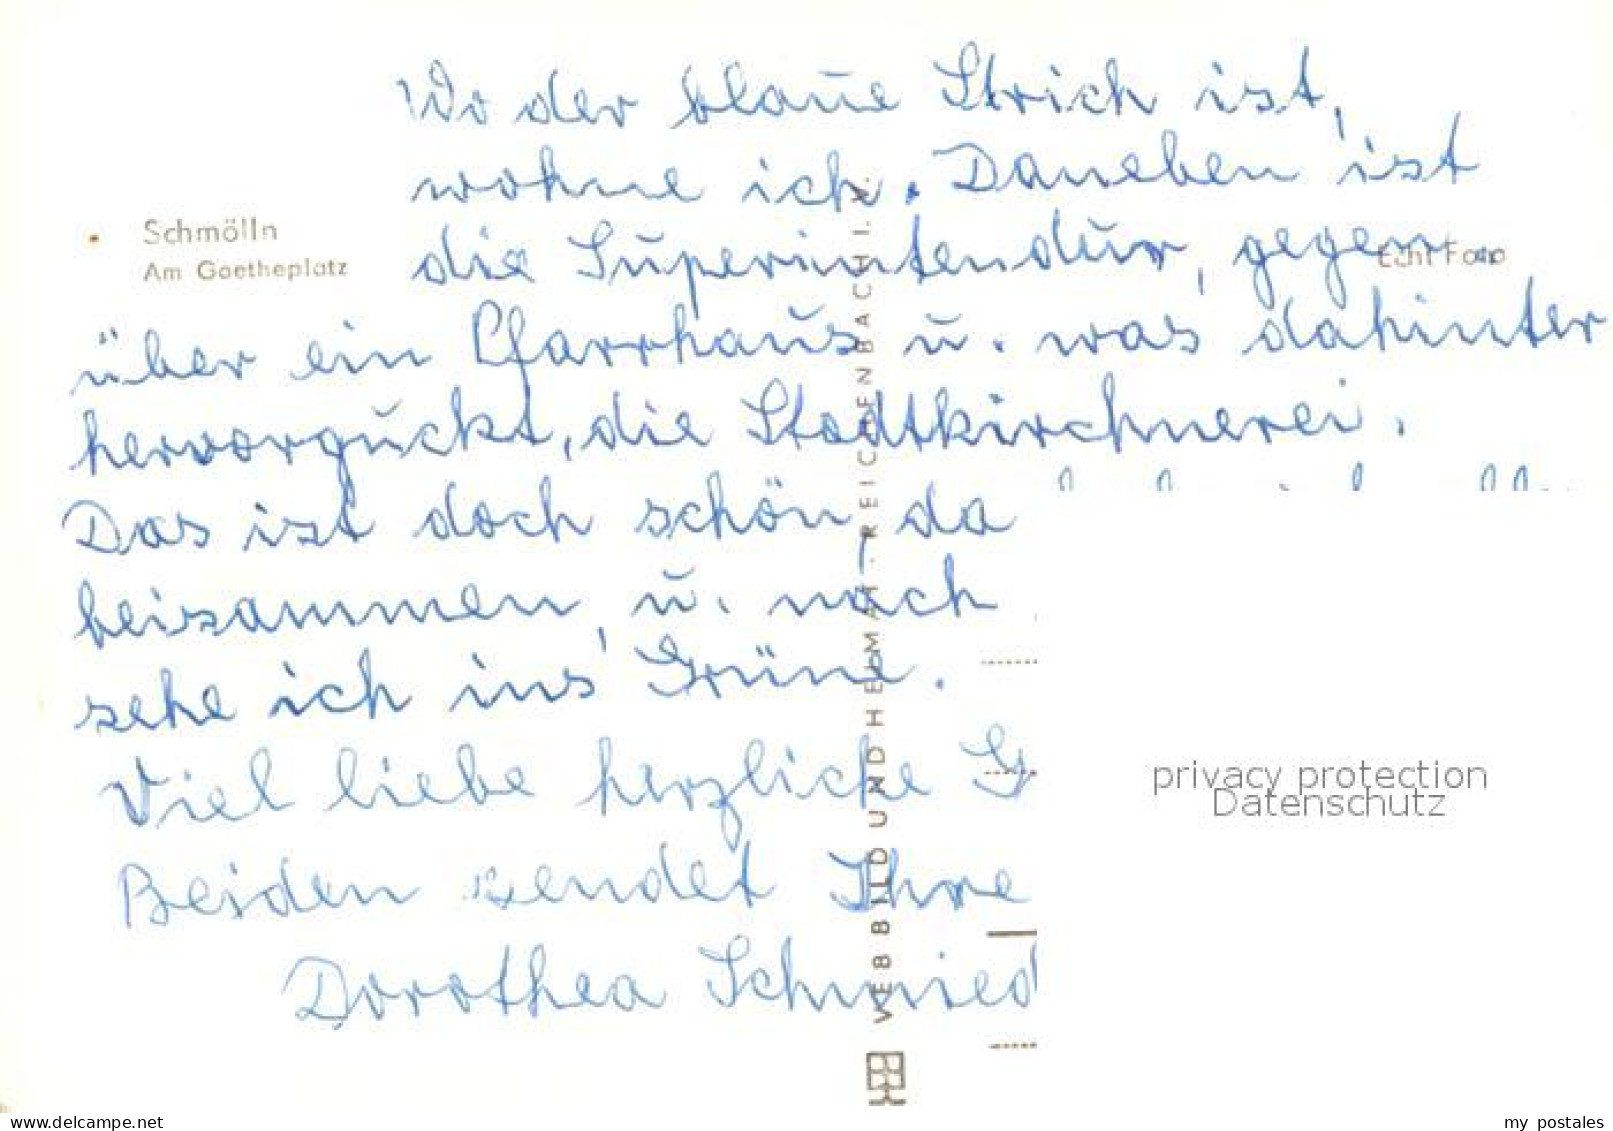 Wo der blaue Strich ist,
wohne ich. Daneben ist
Schmölln
Am Goetheplatz
die Superintendur, gegen
Echt Foto
über ein Pfarrhaus u. was dahinter
hervorguckt, die Stadtkirchnerei.
Das ist doch schön, da
beisammen, u. nach
sehe ich ins Grüne.
Viel liebe herzliche G
Beiden sendet Ihre
Dorothea Schmied
VEB BILD UND HEIMAT · REICHENBACH I. V.
privacy protection
Datenschutz
www.delcampe.net
my_postales